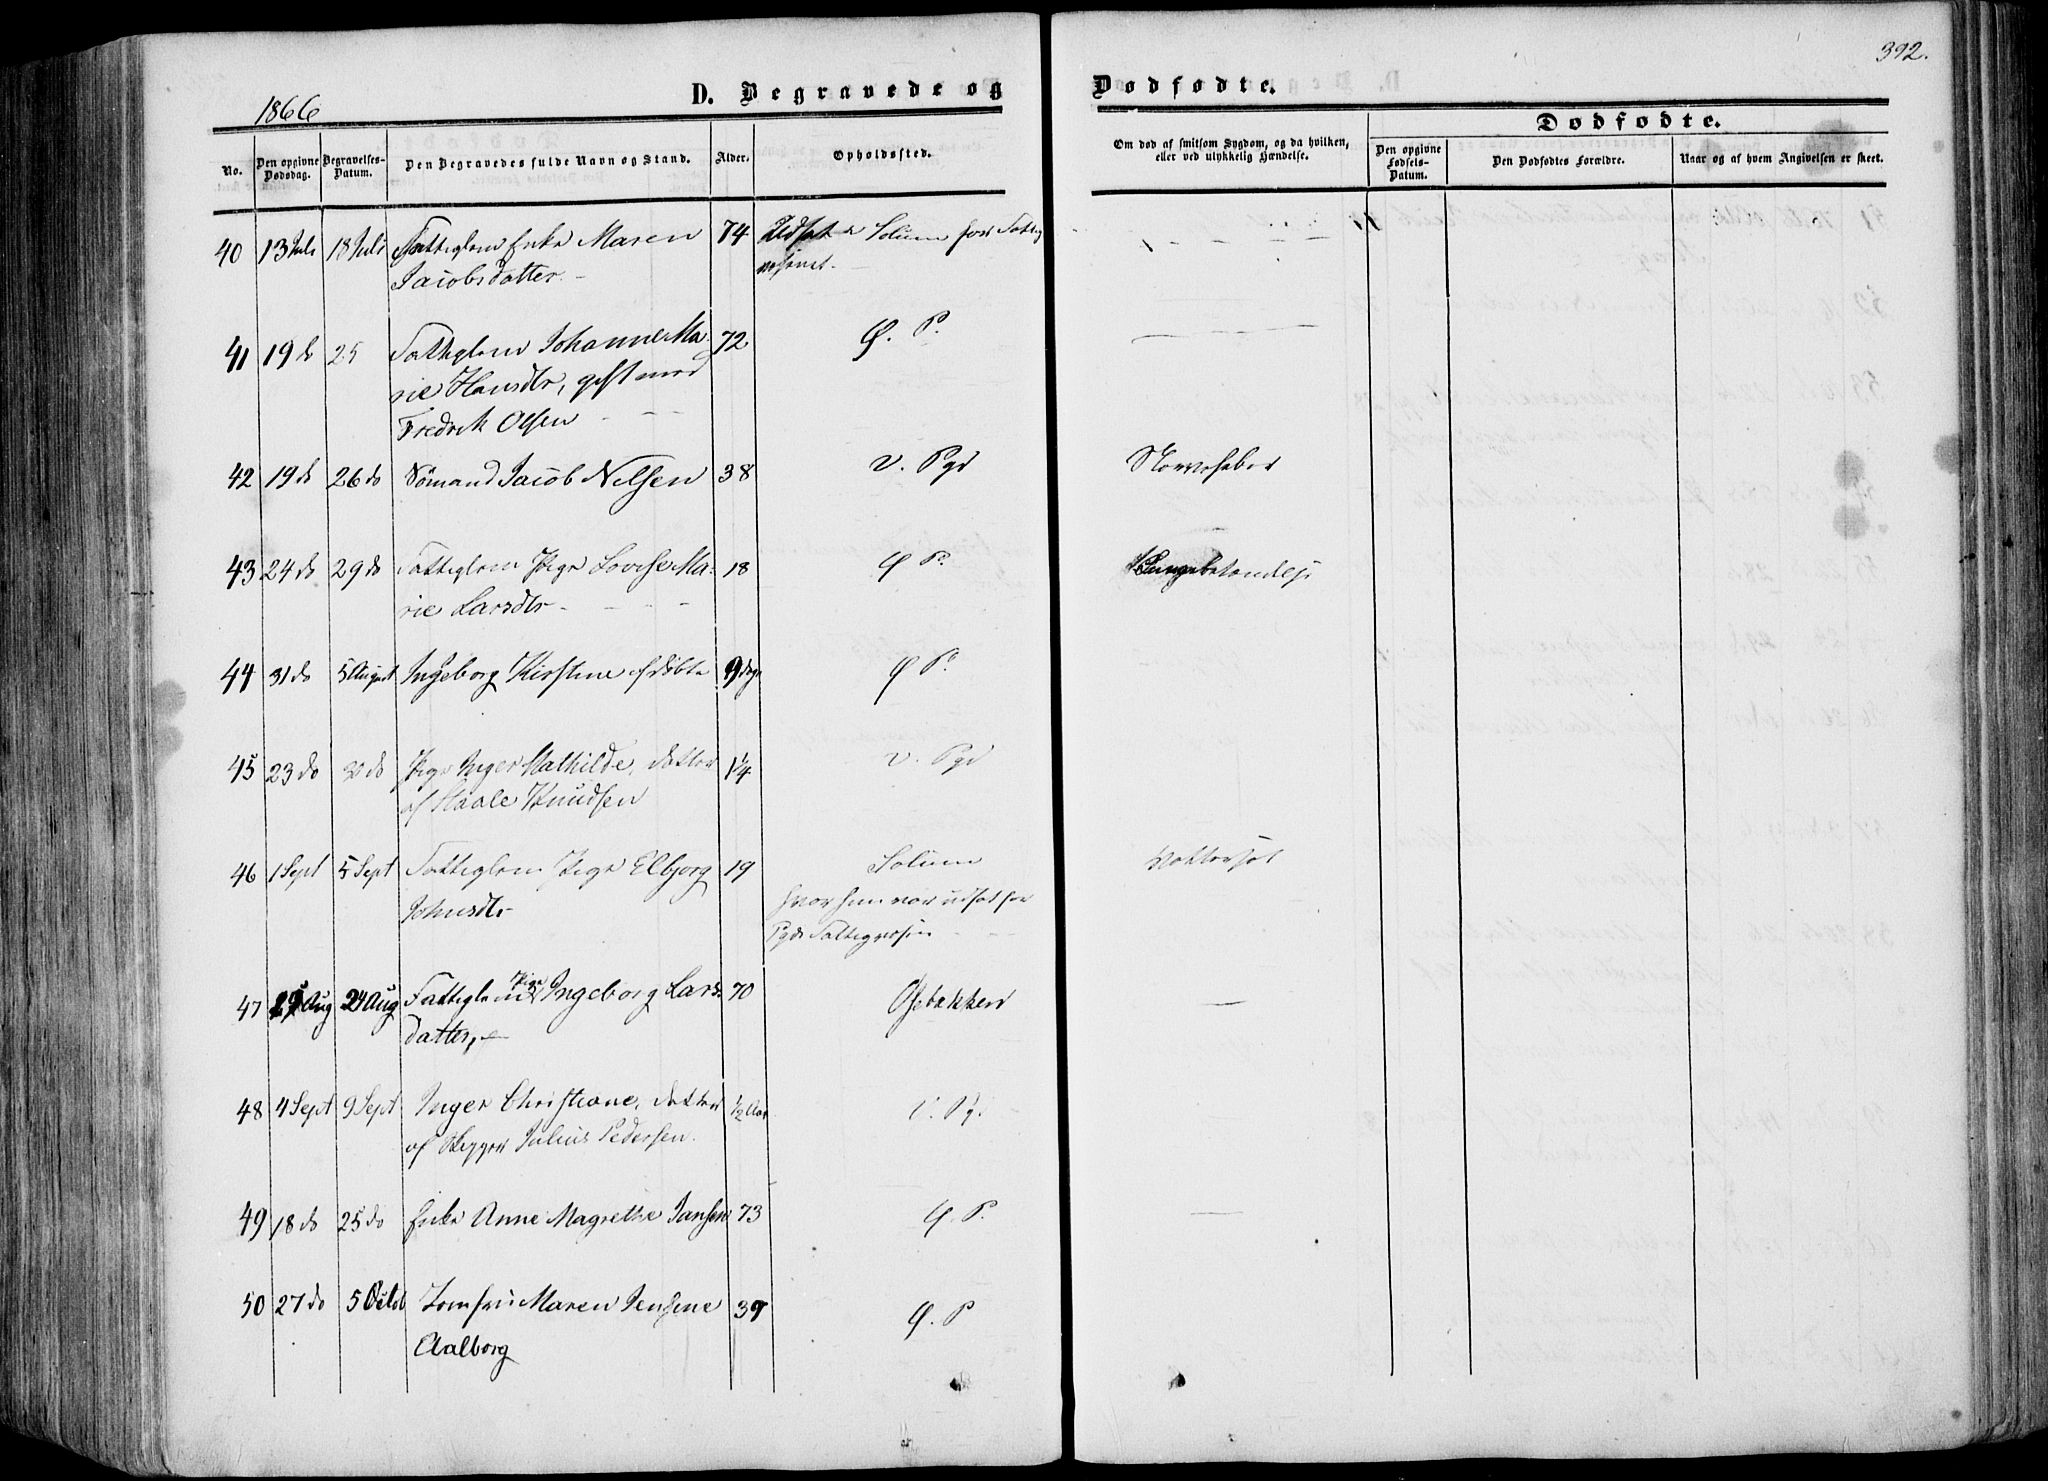 1866
D. Begravede og
Dødfødte.
392.
Dødfødte.
No.
Den opgivne Dødsdag.
Begravelses-Datum.
Den Begravedes fulde Navn og Stand.
Alder.
Opholdssted.
Om død af smitsom Sygdom, og da hvilken, eller ved ulykkelig Hændelse.
Den opgivne Fødsels-Datum.
Den Dødfødtes Forældre.
Naar og af hvem Angivelsen er skeet.
40 13 Juli 18 Juli Fattiglem Enke Maren 74 Udsat i Solum for Fattig
Jacobsdatter.
41 19 do 25 Fattiglem Johanne Ma 72 Ø. P.
rie Hansdtr, gift med
Fredrik Olsen
42 19 do 26 do Sømand Jacob Nilsen 38 V. Pgd Nervefeber
43 24 do 29 do Fattiglem Pige Lovise Ma- 18 Ø P. Lungebetændelse
rie Larsdtr
44 31 do 5 August Ingeborg Kirstine 9 Dage Ø P.
45 23 do 30 do Pige Inger Mathilde, Datter 1/4 V. Pgd
af Staale Knudsen
46 1 Sept 5 Sept Fattiglem Pige Elbjorg 19 Solum Vattersot
Johnsdtr hvor hun var udsat for
Pgds Fattigvæsen
47 Aug 24 Aug Fattiglem Pige Ingeborg Lars- 70
datter,
48 4 Sept 9 Sept Inger Christiane, Datter 1/2 Aar V. Pgd
af Skipper Julius Pedersen.
49 18 do 25 do Enke Anne Magrethe Jansen 73 Ø. P.
50 27 do 5 Octob Jomfru Maren Jensine 39 Ø. P
Aalborg